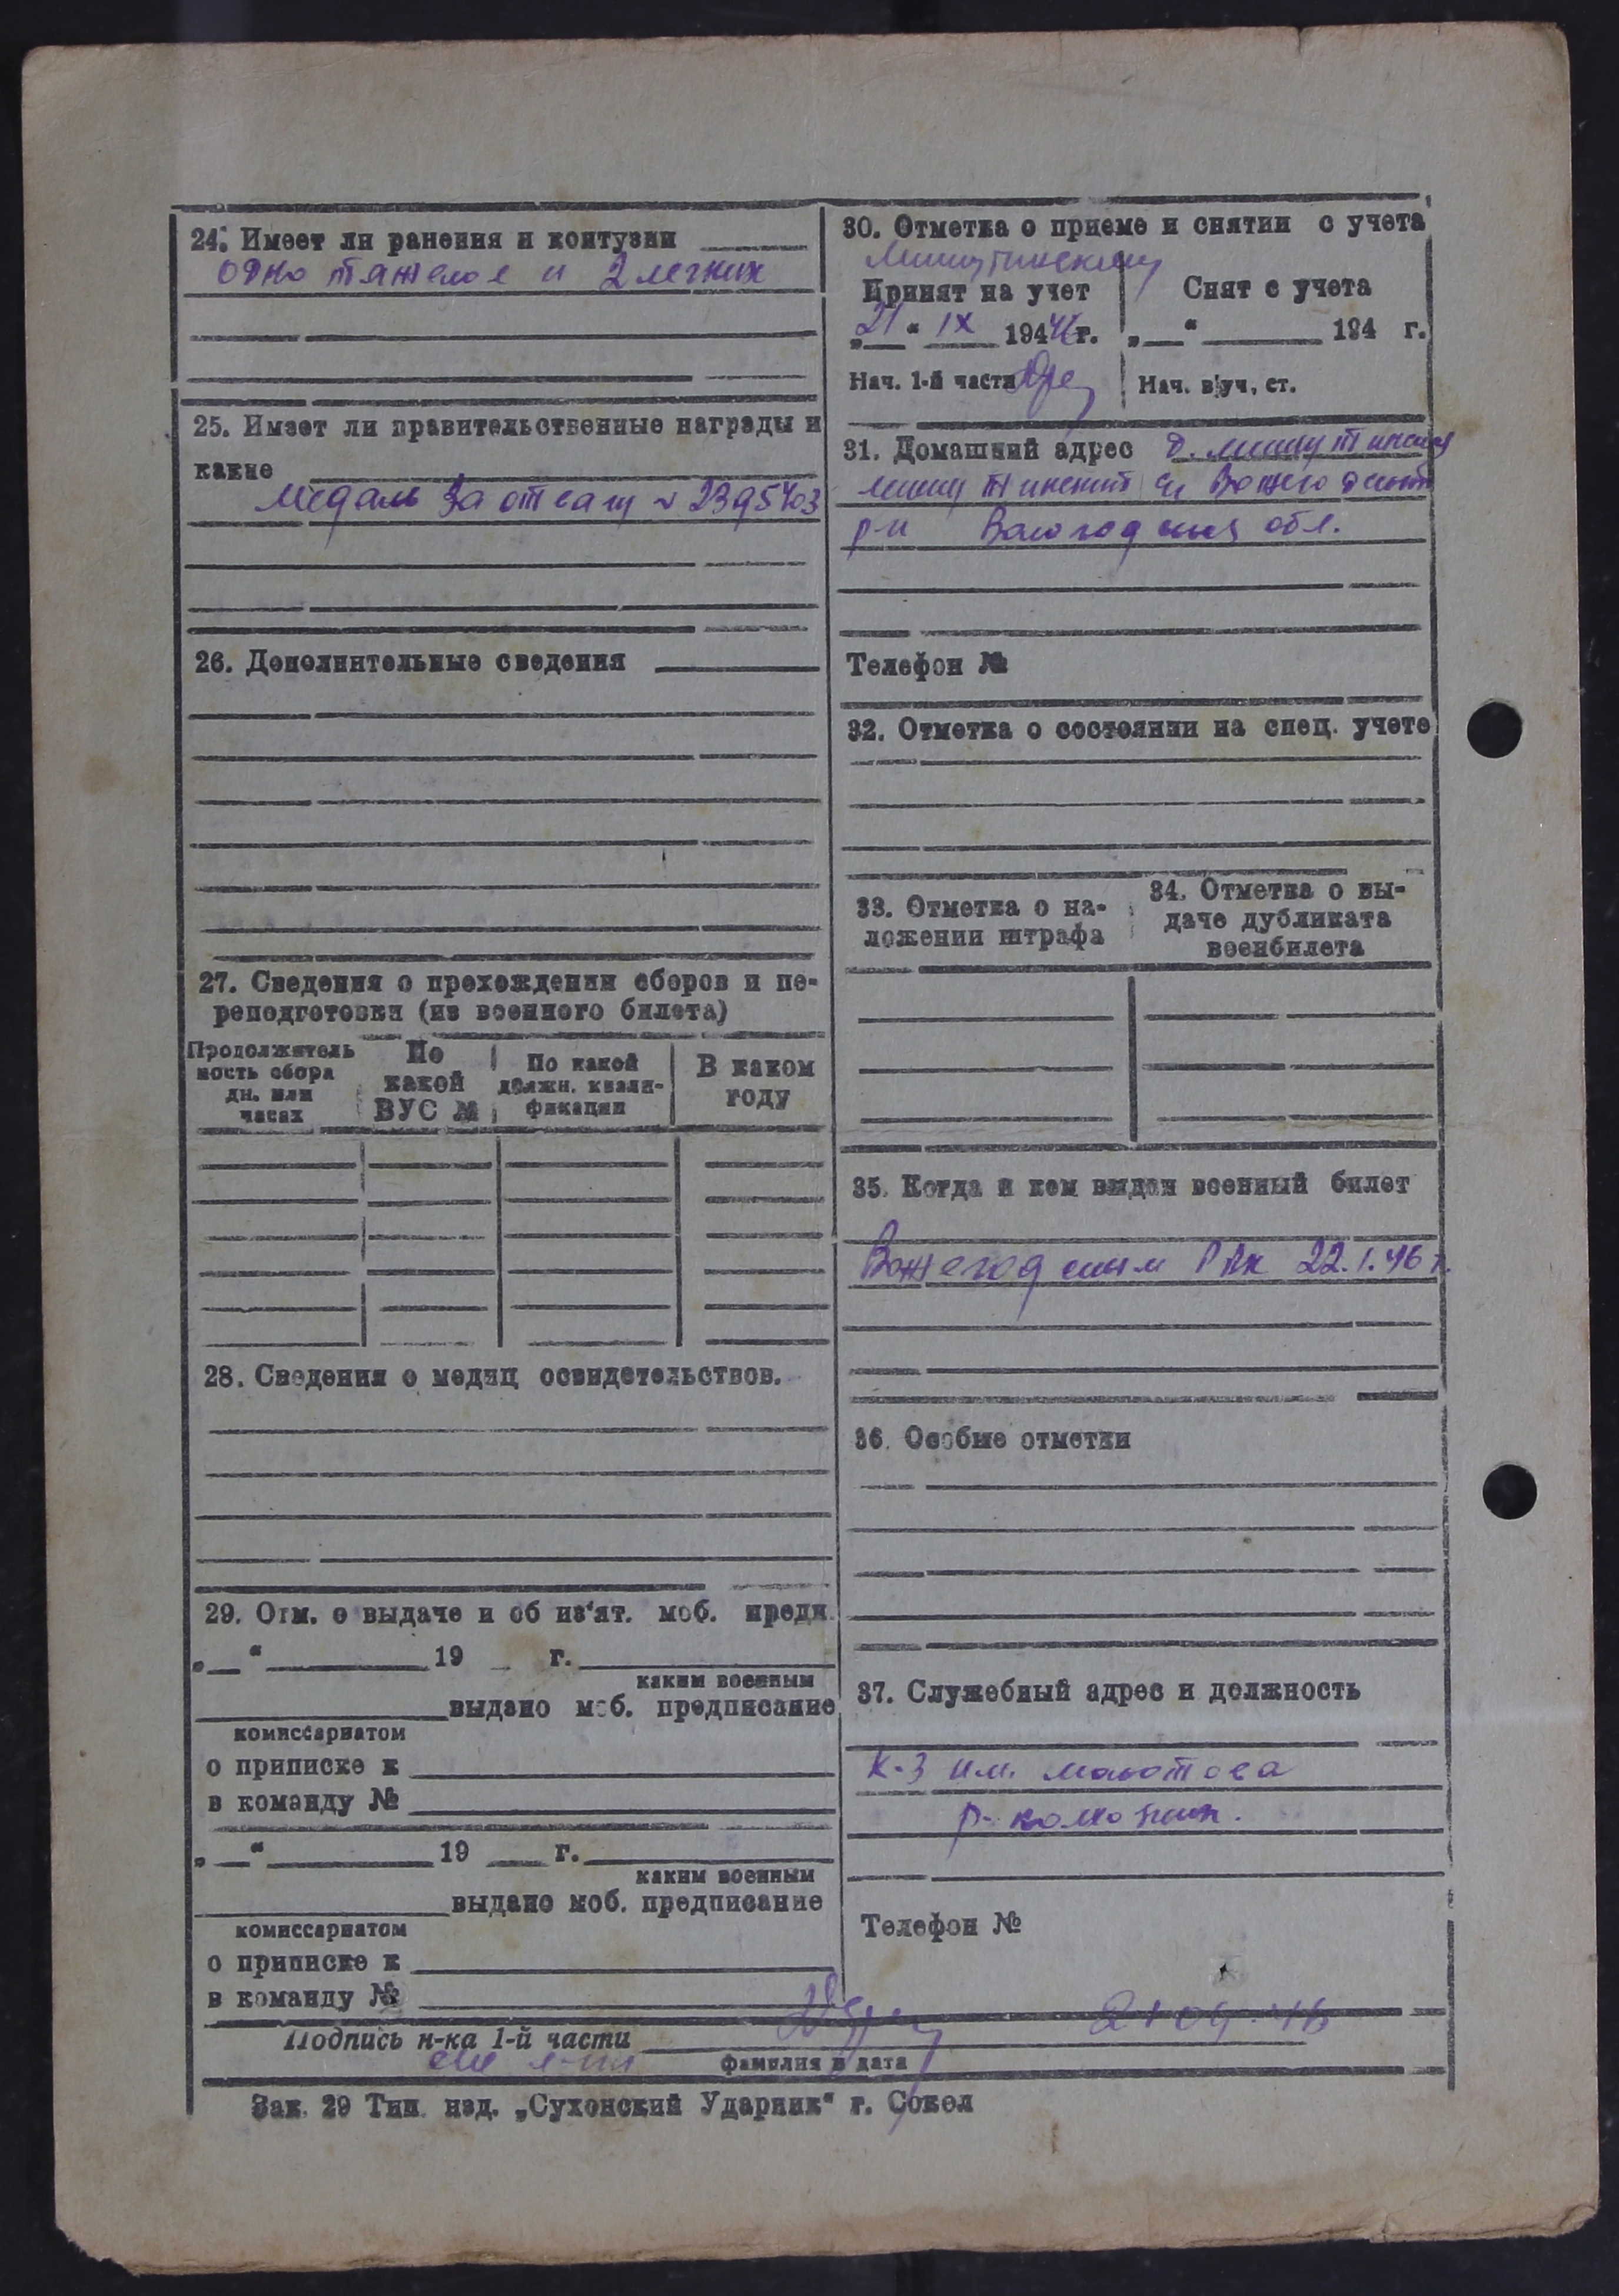 24. Имеет ли ранения и контузии
одно тяжелое и 2 легких
25. Имеет ли правительственные награды и
какие
медаль За отвагу № 2395403
26. Дополнительные сведения
27. Сведения о прохождении сборов и пе-
реподготовки (из военного билета)
Продолжитель
ность сбора
дн. или
часах
По
какой
ВУС №
По какой
должн. квали-
фикации
В каком
году
28. Сведения о медиц освидетельствов.
29. Отм. о выдаче и об из'ят. моб. предп.
„ “ 19 г.
каким военным
выдано моб. предписание
комиссариатом
о приписке к
в команду №
„ “ 19 г.
каким военным
выдано моб. предписание
комиссариатом
о приписке к
в команду №
30. Отметка о приеме и снятии с учета
Принят на учет
„21“ IX 1946г.
Нач. 1-й части
Снят с учета
„ “ 194 г.
Нач. в|уч, ст.
31. Домашний адрес д.
Вожегодский
р-н Вологодская обл.
Телефон №
32. Отметка о состоянии на спец. учете
33. Отметка о на-
ложении штрафа
34. Отметка о вы-
даче дубликата
военбилета
35. Когда и кем выдан военный билет
Вожегодским РВК 22.1.46 г.
36. Особые отметки
37. Служебный адрес и должность
К-з им. молотова
Телефон №
21 09. 46
Подпись н-ка 1-й части
фамилия и дата
Зак. 29 Тип. изд. „Сухонский Ударник“ г. Сокол